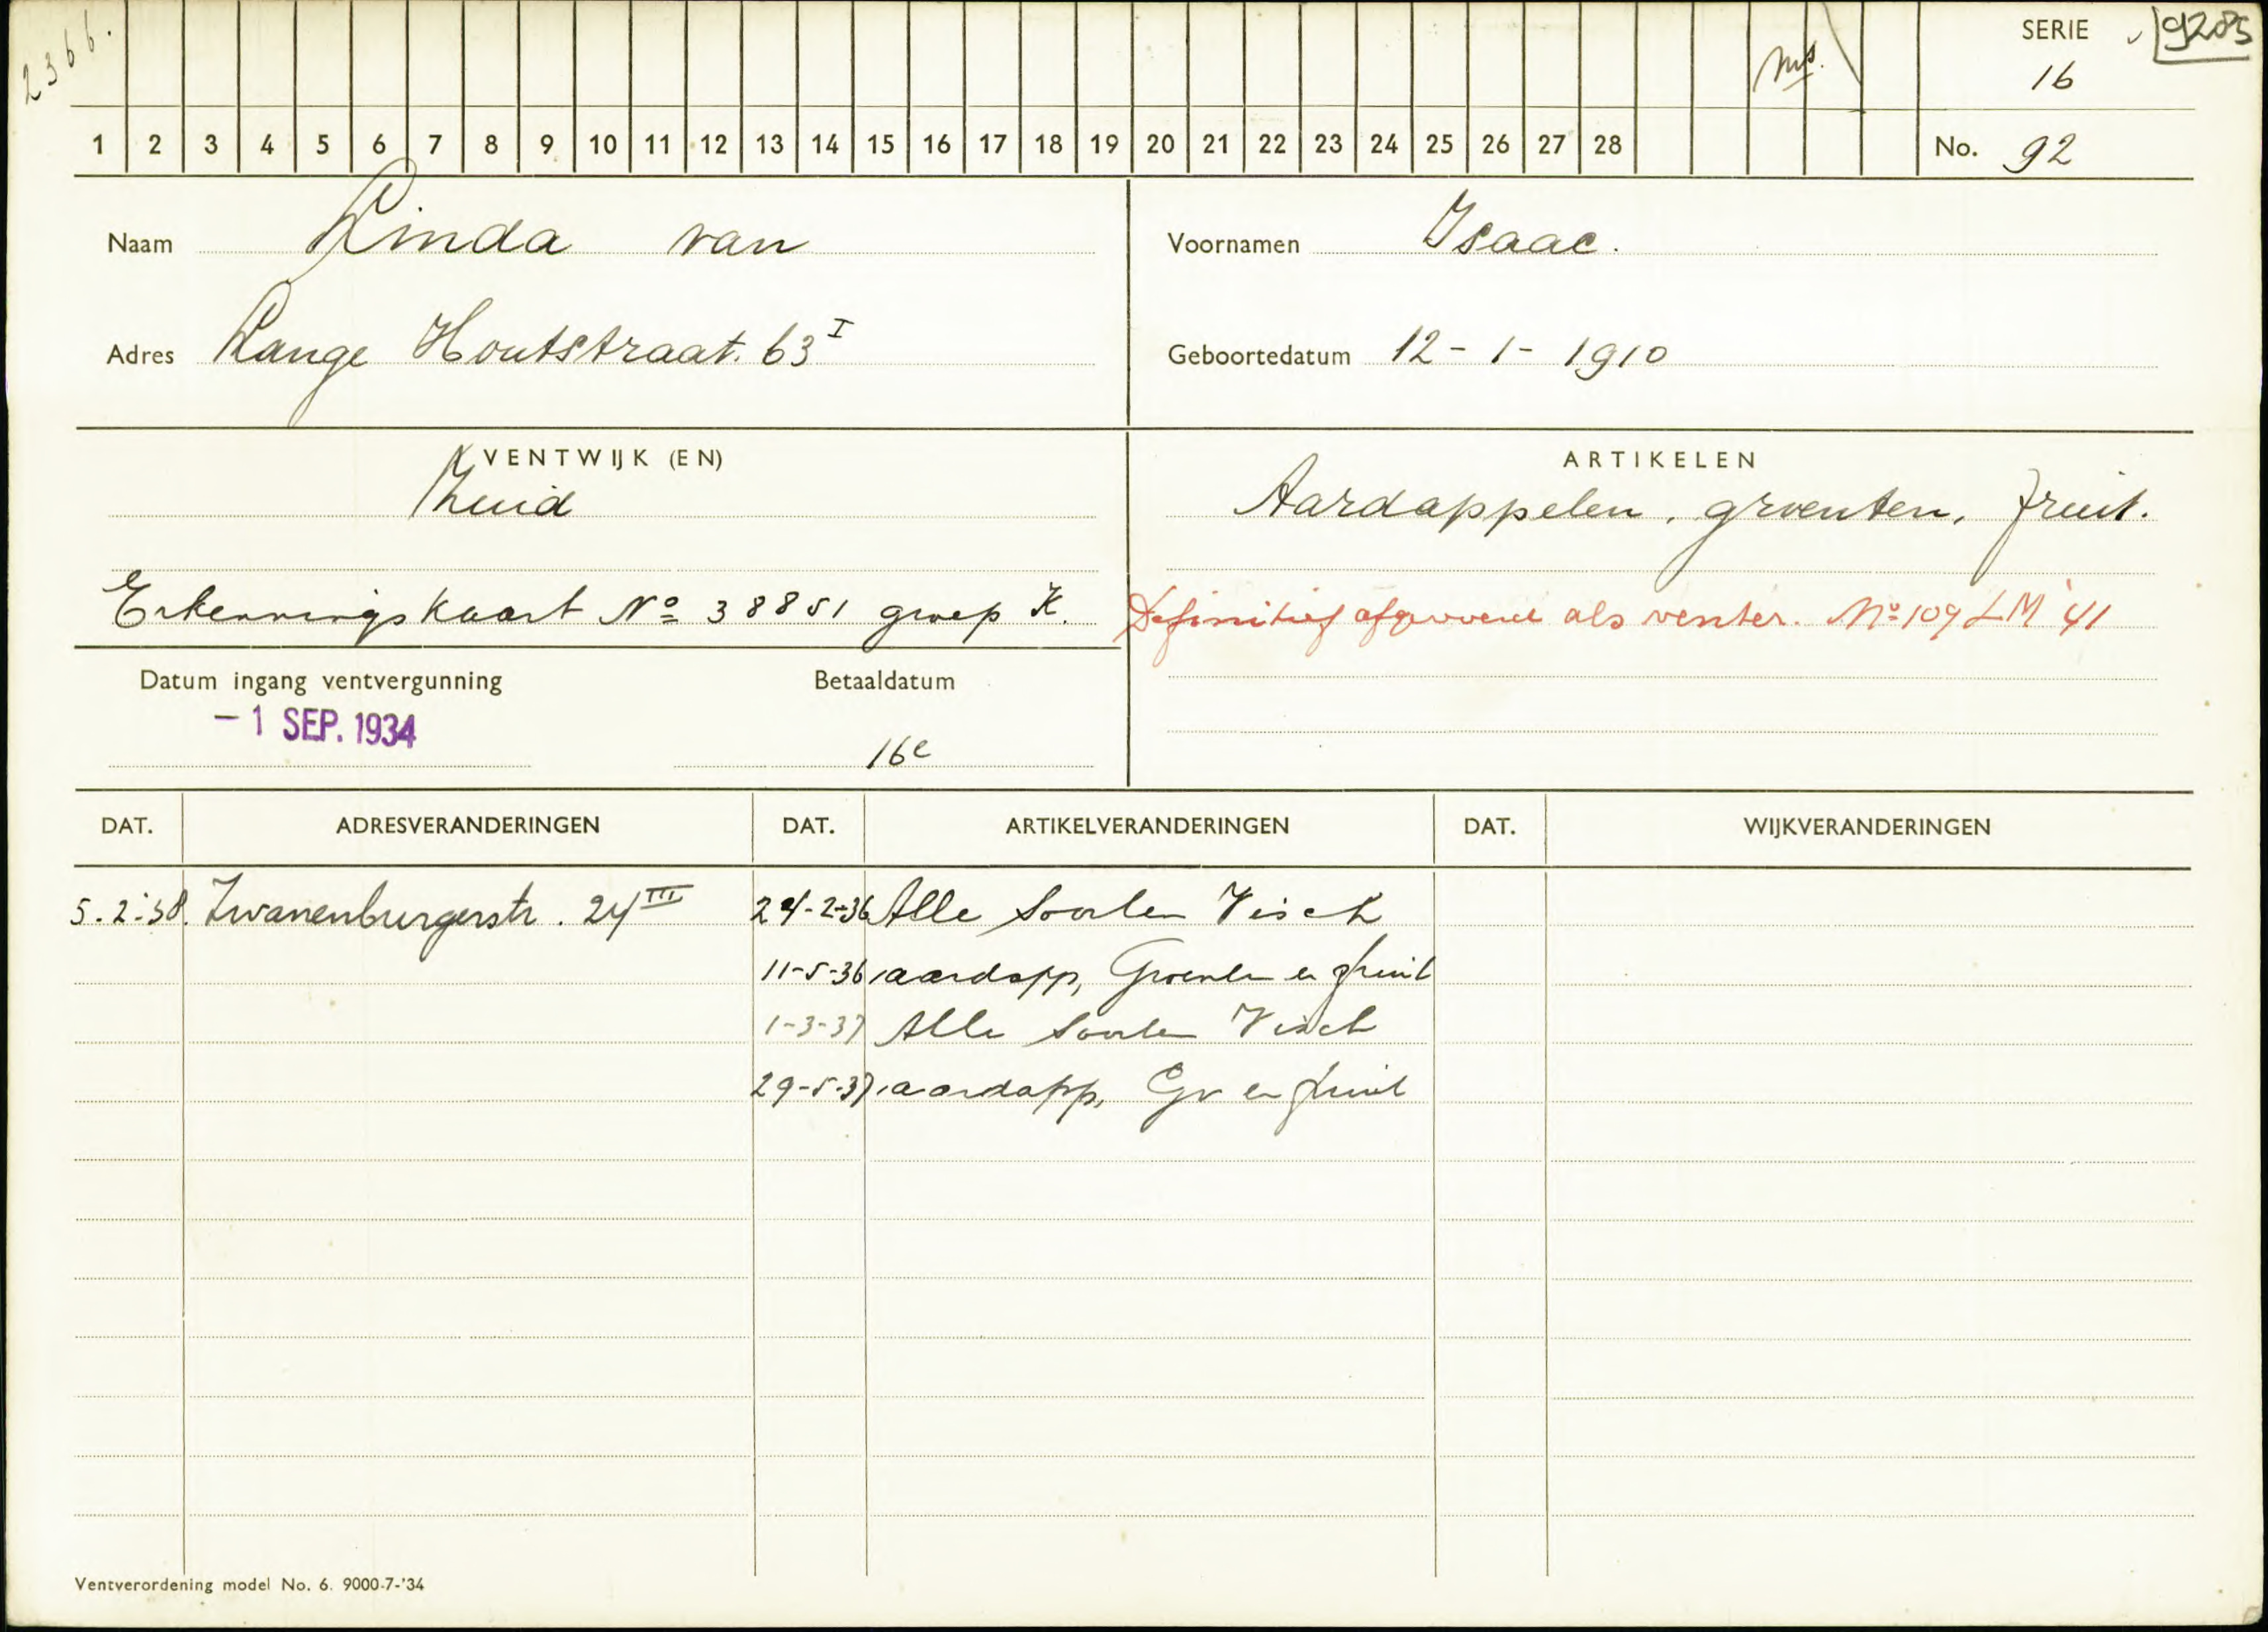 2366.
ms.
SERIE
9285
16
1 2 3 4 5 6 7 8 9 10 11 12 13 14 15 16 17 18 19 20 21 22 23 24 25 26 27 28
No. 92
Naam Linda van
Voornamen Isaac.
Adres Lange Houtstraat. 63 I
Geboortedatum 12-1-1910
VENTWIJK (EN)
Zuid
ARTIKELEN
Aardappelen, groenten, fruit.
Erkenningskaart No 38851 groep K.
Definitief afgevoerd als venter. No 109 LM '41
Datum ingang ventvergunning
-1 SEP. 1934
Betaaldatum
16e
DAT. ADRESVERANDERINGEN DAT. ARTIKELVERANDERINGEN DAT. WIJKVERANDERINGEN
5-2-38. Zwanenburgerstr. 24 III 24-2-36 Alle Soorten Visch
11-5-36 aardapp, Groenten en fruit
1-3-37 Alle Soorten Visch
29-5-37 aardapp, Gr en fruit
Ventverordening model No. 6. 9000-7-'34